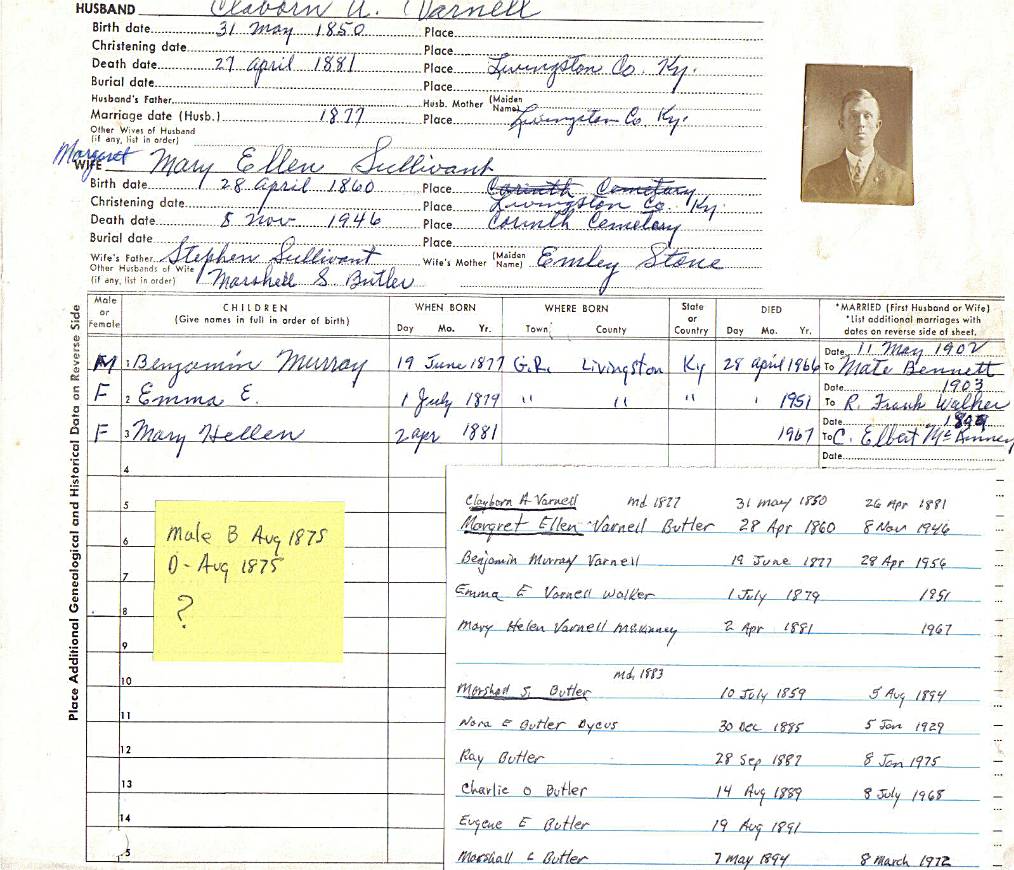 HUSBAND Claborn A. Varnell
Birth date 31 May 1850 Place
Christening date Place
Death date 27 April 1881 Place Livingston Co. Ky.
Burial date Place
Husband's Father Husb. Mother (Maiden Name)
Marriage date (Husb.) 1877 Place Livingston Co. Ky.
Other Wives of Husband
(if any, list in order)
Margaret
WIFE Mary Ellen Sullivant
Birth date 28 April 1860 Place Corinth Cemetary
Christening date Place Livingston Co. Ky.
Death date 8 Nov 1946 Place Corinth Cemetary
Burial date Place
Wife's Father Stephen Sullivant Wife's Mother (Maiden Name) Emley Stone
Other Husbands of Wife
(if any, list in order) Marshell S. Butler
Place Additional Genealogical and Historical Data on Reverse Side
Male or Female CHILDREN (Give names in full in order of birth) WHEN BORN Day Mo. Yr. WHERE BORN Town County State or Country DIED Day Mo. Yr. *MARRIED (First Husband or Wife) *List additional marriages with dates on reverse side of sheet.
Date 11 May 1902
M 1 Benjamin Murray 19 June 1877 G.R. Livingston Ky 28 April 1966 To Mate Bennett
Date 1903
F 2 Emma E. 1 July 1879 " " " 1951 To R. Frank Walker
Date
F 3 Mary Hellen 2 Apr 1881 1967 To C. Elbert McKinney
Date
4
5
7
8
9
10
11
12
13
14
Male B Aug 1875
D- Aug 1875
?
Clayborn A Varnell md 1877 31 May 1850 26 Apr 1881
Margret Ellen Varnell Butler 28 Apr 1860 8 Nov 1946
Benjamin Murray Varnell 19 June 1877 28 Apr 1956
Emma E Varnell Walker 1 July 1879 1951
Mary Helen Varnell McKinney 2 Apr 1881 1967
md. 1883
Marshall S. Butler 10 July 1859 5 Aug 1894
Nora E Butler Dycus 30 Dec 1885 5 Jan 1929
Ray Butler 28 Sep 1887 8 Jan 1975
Charlie O Butler 14 Aug 1889 8 July 1968
Eugene E Butler 19 Aug 1891
Marshall C Butler 7 May 1894 8 March 1972